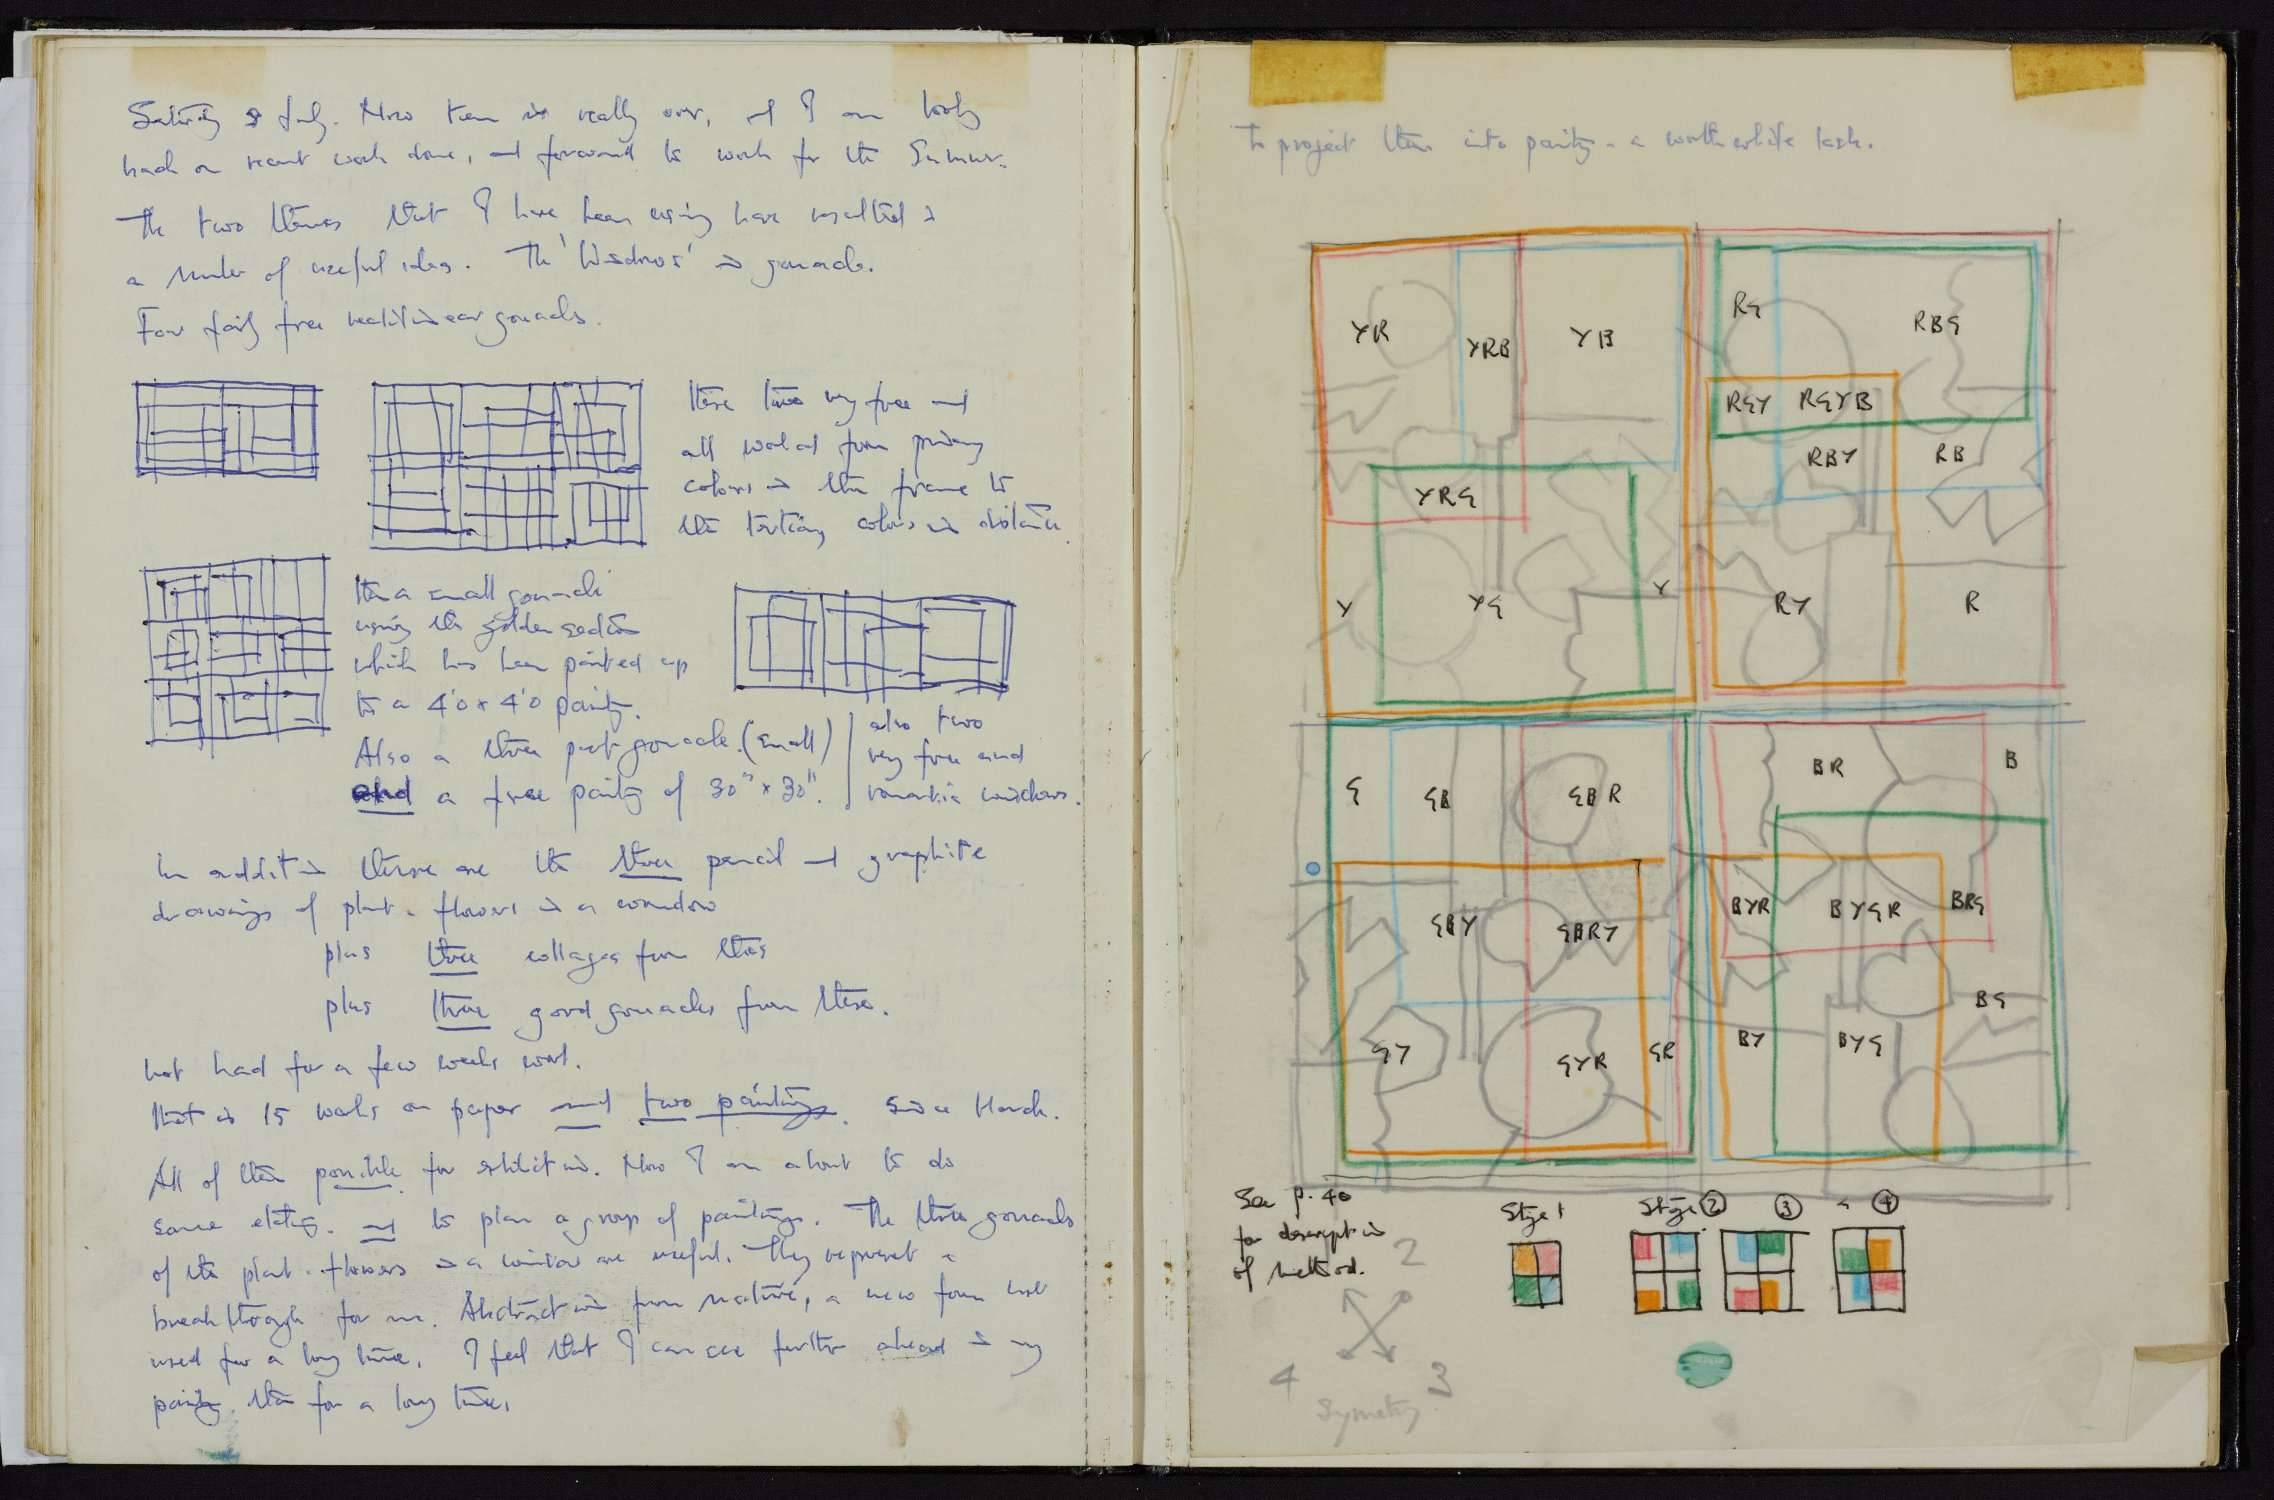 Saturday 8 July. Now term is really over, and I can look
back on recent work done, and forward to work for the Summer.
The two themes that I have been using have resulted in
a number of useful ideas. The 'Windows' in gouache.
Four fairly free rectilinear gouaches.
These two very free and
all worked from primary
colours in the frame to
the tertiary colours in distance.
Then a small gouache
using the golden section
which has been painted up
to a 4'0 x 4'0 painting.
Also a three part gouache. (small)
and a free painting of 30" x 30".
also two
very free and
romantic windows.
In addition there are the three pencil and graphite
drawings of plant - flowers in a window
plus three collages from this
plus three good gouaches from these.
Not bad for a few weeks work.
That is 15 works on paper and two paintings. Since March.
All of them possible for exhibition. Now I am about to do
some etching. and to plan a group of paintings. The three gouaches
of the plant - flowers in a window are useful. They represent a
breakthrough for me. Abstraction from nature, a new form not
used for a long time. I feel that I can see further ahead in my
painting than for a long time.
To project them into painting - a worthwhile task.
YR YRB YB
RG RBG
RGY RGYB
RBY RB
YRG
Y YG Y
RY R
G GB GBR
BR B
GBY GBRY
BYR BYGR BRG
BG
GY GYR GR
BY BYG
See p. 40
for description
of method.
Stage 1
Stage 2 3 4
2
4 3
Symetry